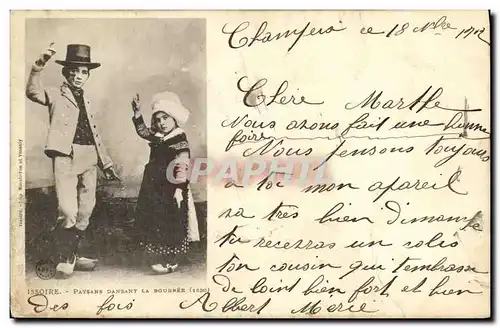 Champeix ce 18 Nbre
Chère Marthe
Nous avons fait une bonne
foire Nous pensons toujours
a toi mon apareil
va tres bien dimanche
tu recevras un colis
ton cousin qui t'embrasse
de loint bien fort et bien
des fois Albert Mérie
ISSOIRE. - PAYSANS DANSANT LA BOURRÉE (1830)
CPARAMA